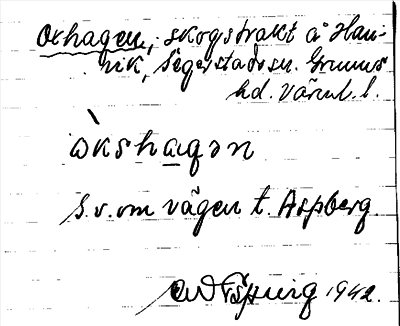 Oxhagen, skogstrakt å Han-
vik, Segerstads sn. Grums
hd. Värml. l.
òkshagən
S. v. om vägen t. Aspberg.
1942.